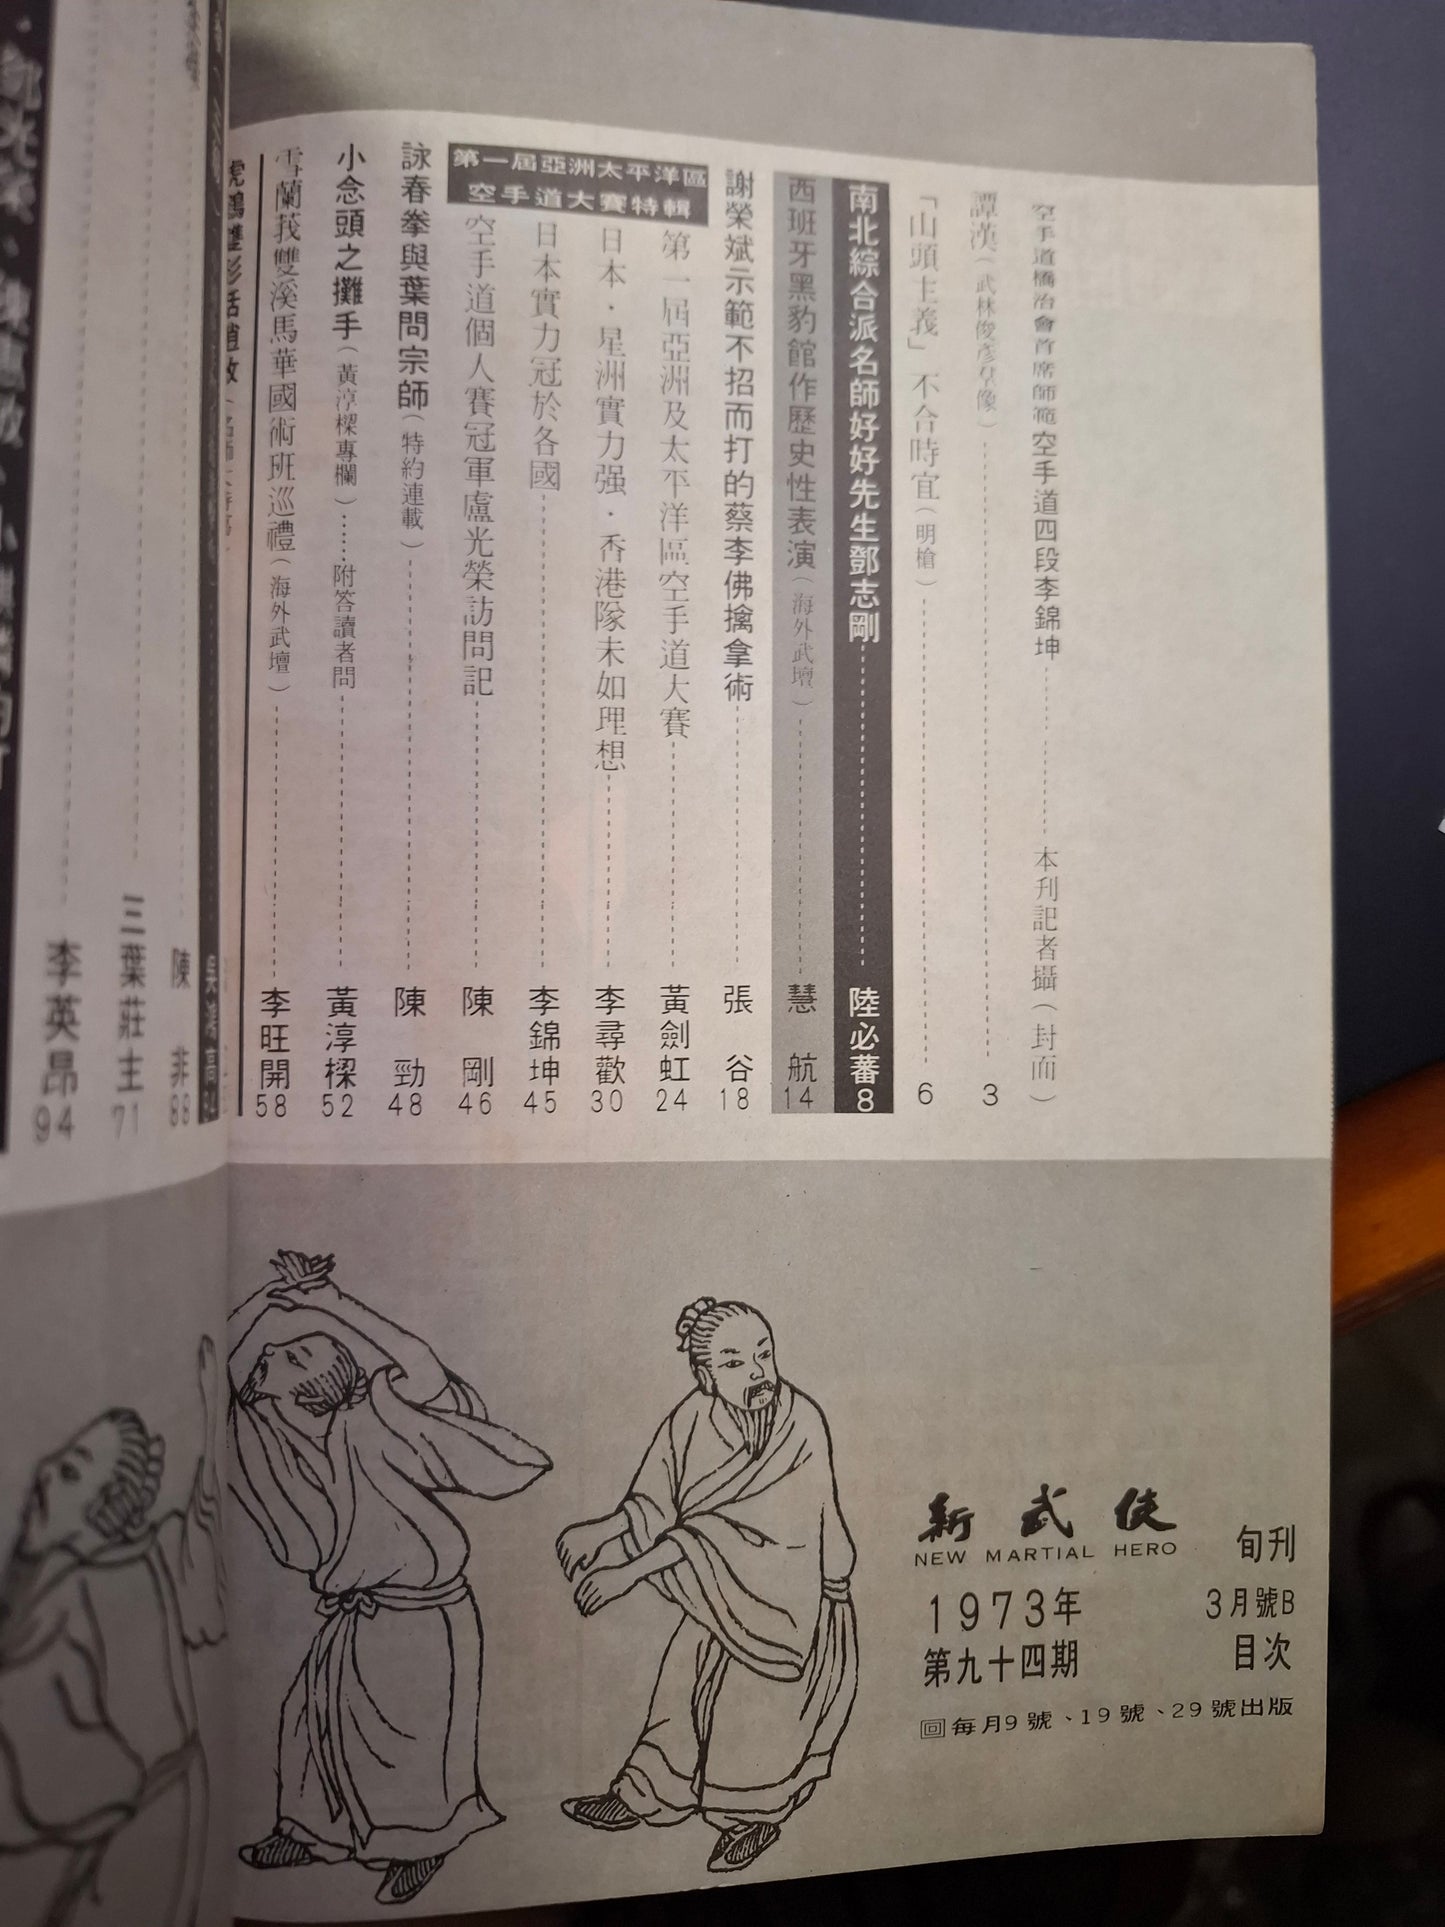 空手道橋治會首席師範空手道四段李錦坤………本刊記者攝(封面)
譚漢(武林俊彥羣像)………3
「山頭主義」不合時宜(明槍)………6
南北綜合派名師好好先生鄧志剛………陸必蕃8
西班牙黑豹館作歷史性表演(海外武壇)………慧航14
謝榮斌示範不招而打的蔡李佛擒拿術………張谷18
第一屆亞洲太平洋區
空手道大賽特輯
第一屆亞洲及太平洋區空手道大賽………黃劍虹24
日本·星洲實力强·香港隊未如理想………李尋歡30
日本實力冠於各國………李錦坤45
空手道個人賽冠軍盧光榮訪問記………陳剛46
詠春拳與葉問宗師(特約連載)………陳勁48
小念頭之攤手(黃淳樑專欄)……附答讀者問………黃淳樑52
雪蘭莪雙溪馬華國術班巡禮(海外武壇)………李旺開58
三葉莊主71
陳非88
李英昂94
新武俠
NEW MARTIAL HERO
旬刊
1973年
3月號B
第九十四期
目次
回每月9號、19號、29號出版